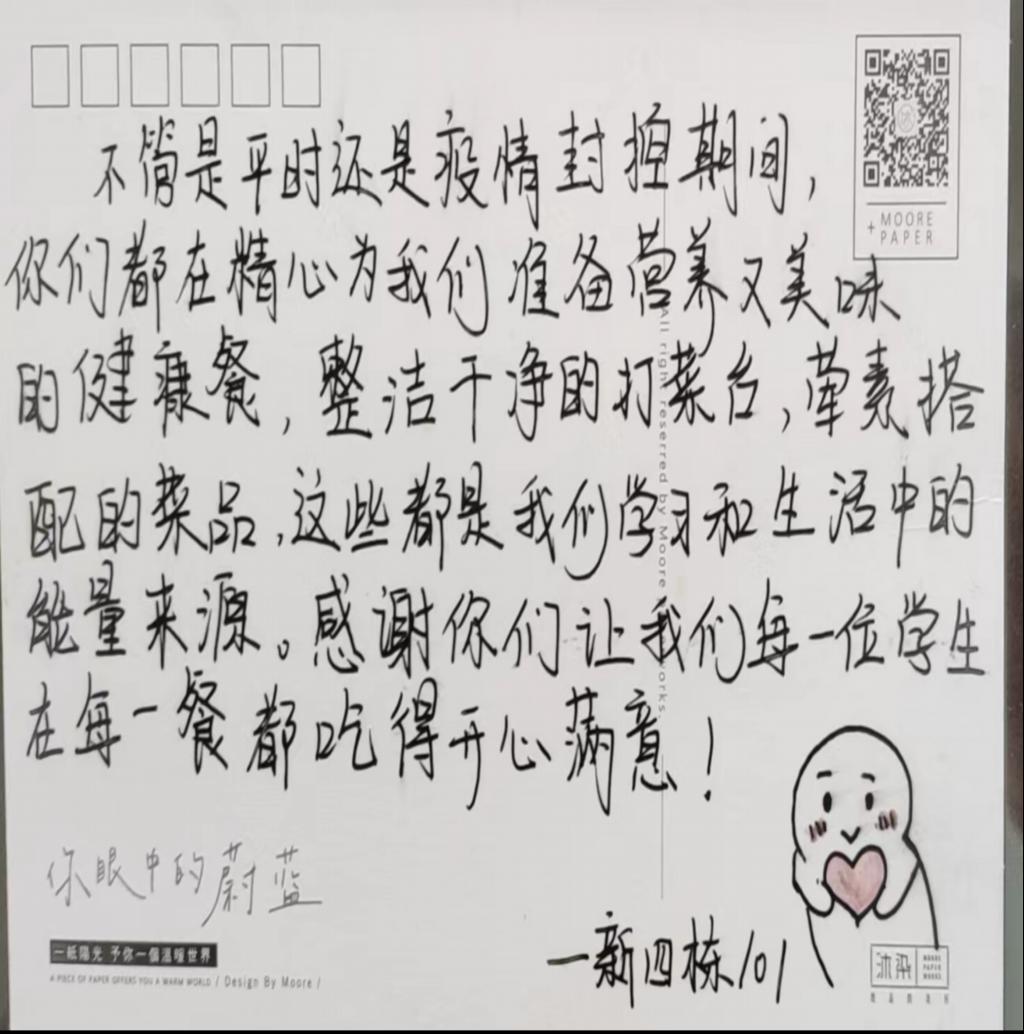 不管是平时还是疫情封控期间,
你们都在精心为我们准备营养又美味
的健康餐,整洁干净的打菜台,荤素搭
配的菜品,这些都是我们学习和生活中的
能量来源。感谢你们让我们每一位学生
在每一餐都吃得开心满意!
+ MOORE
PAPER
All right reserred by Moore
works.
你眼中的蔚蓝
一紙陽光 予你一個溫暖世界
A PIECE OF PAPER OFFERS YOU A WARM WORLD / Design By Moore /
一新四栋101
沐染
MOORE
PAPER
WORKS